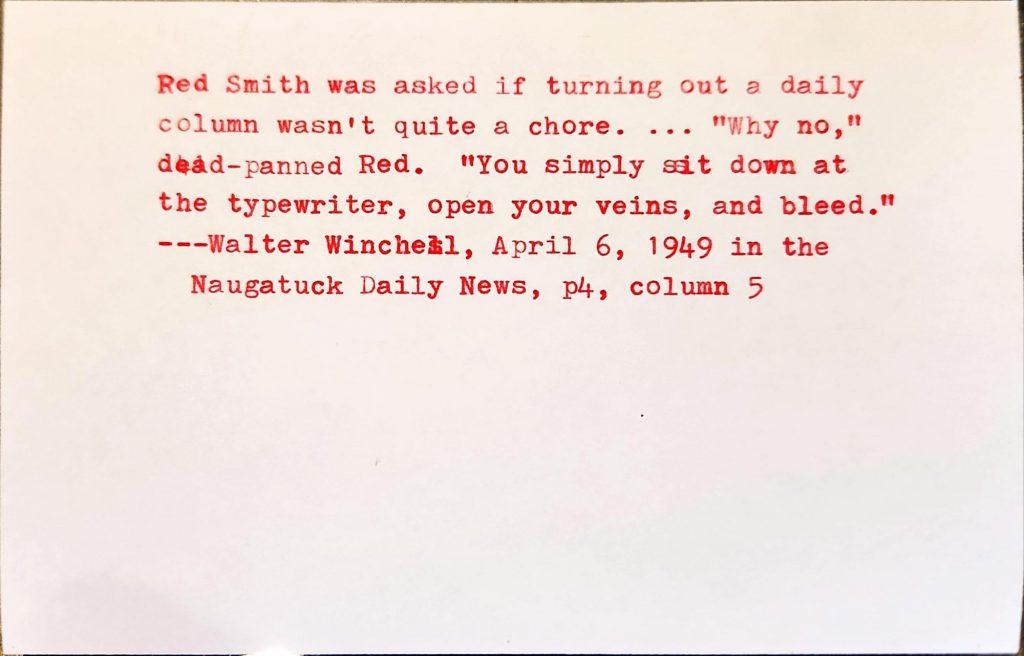 Red Smith was asked if turning out a daily
column wasn't quite a chore. ... "Why no,"
dead-panned Red.  "You simply sit down at
the typewriter, open your veins, and bleed."
---Walter Winchell, April 6, 1949 in the
Naugatuck Daily News, p4, column 5